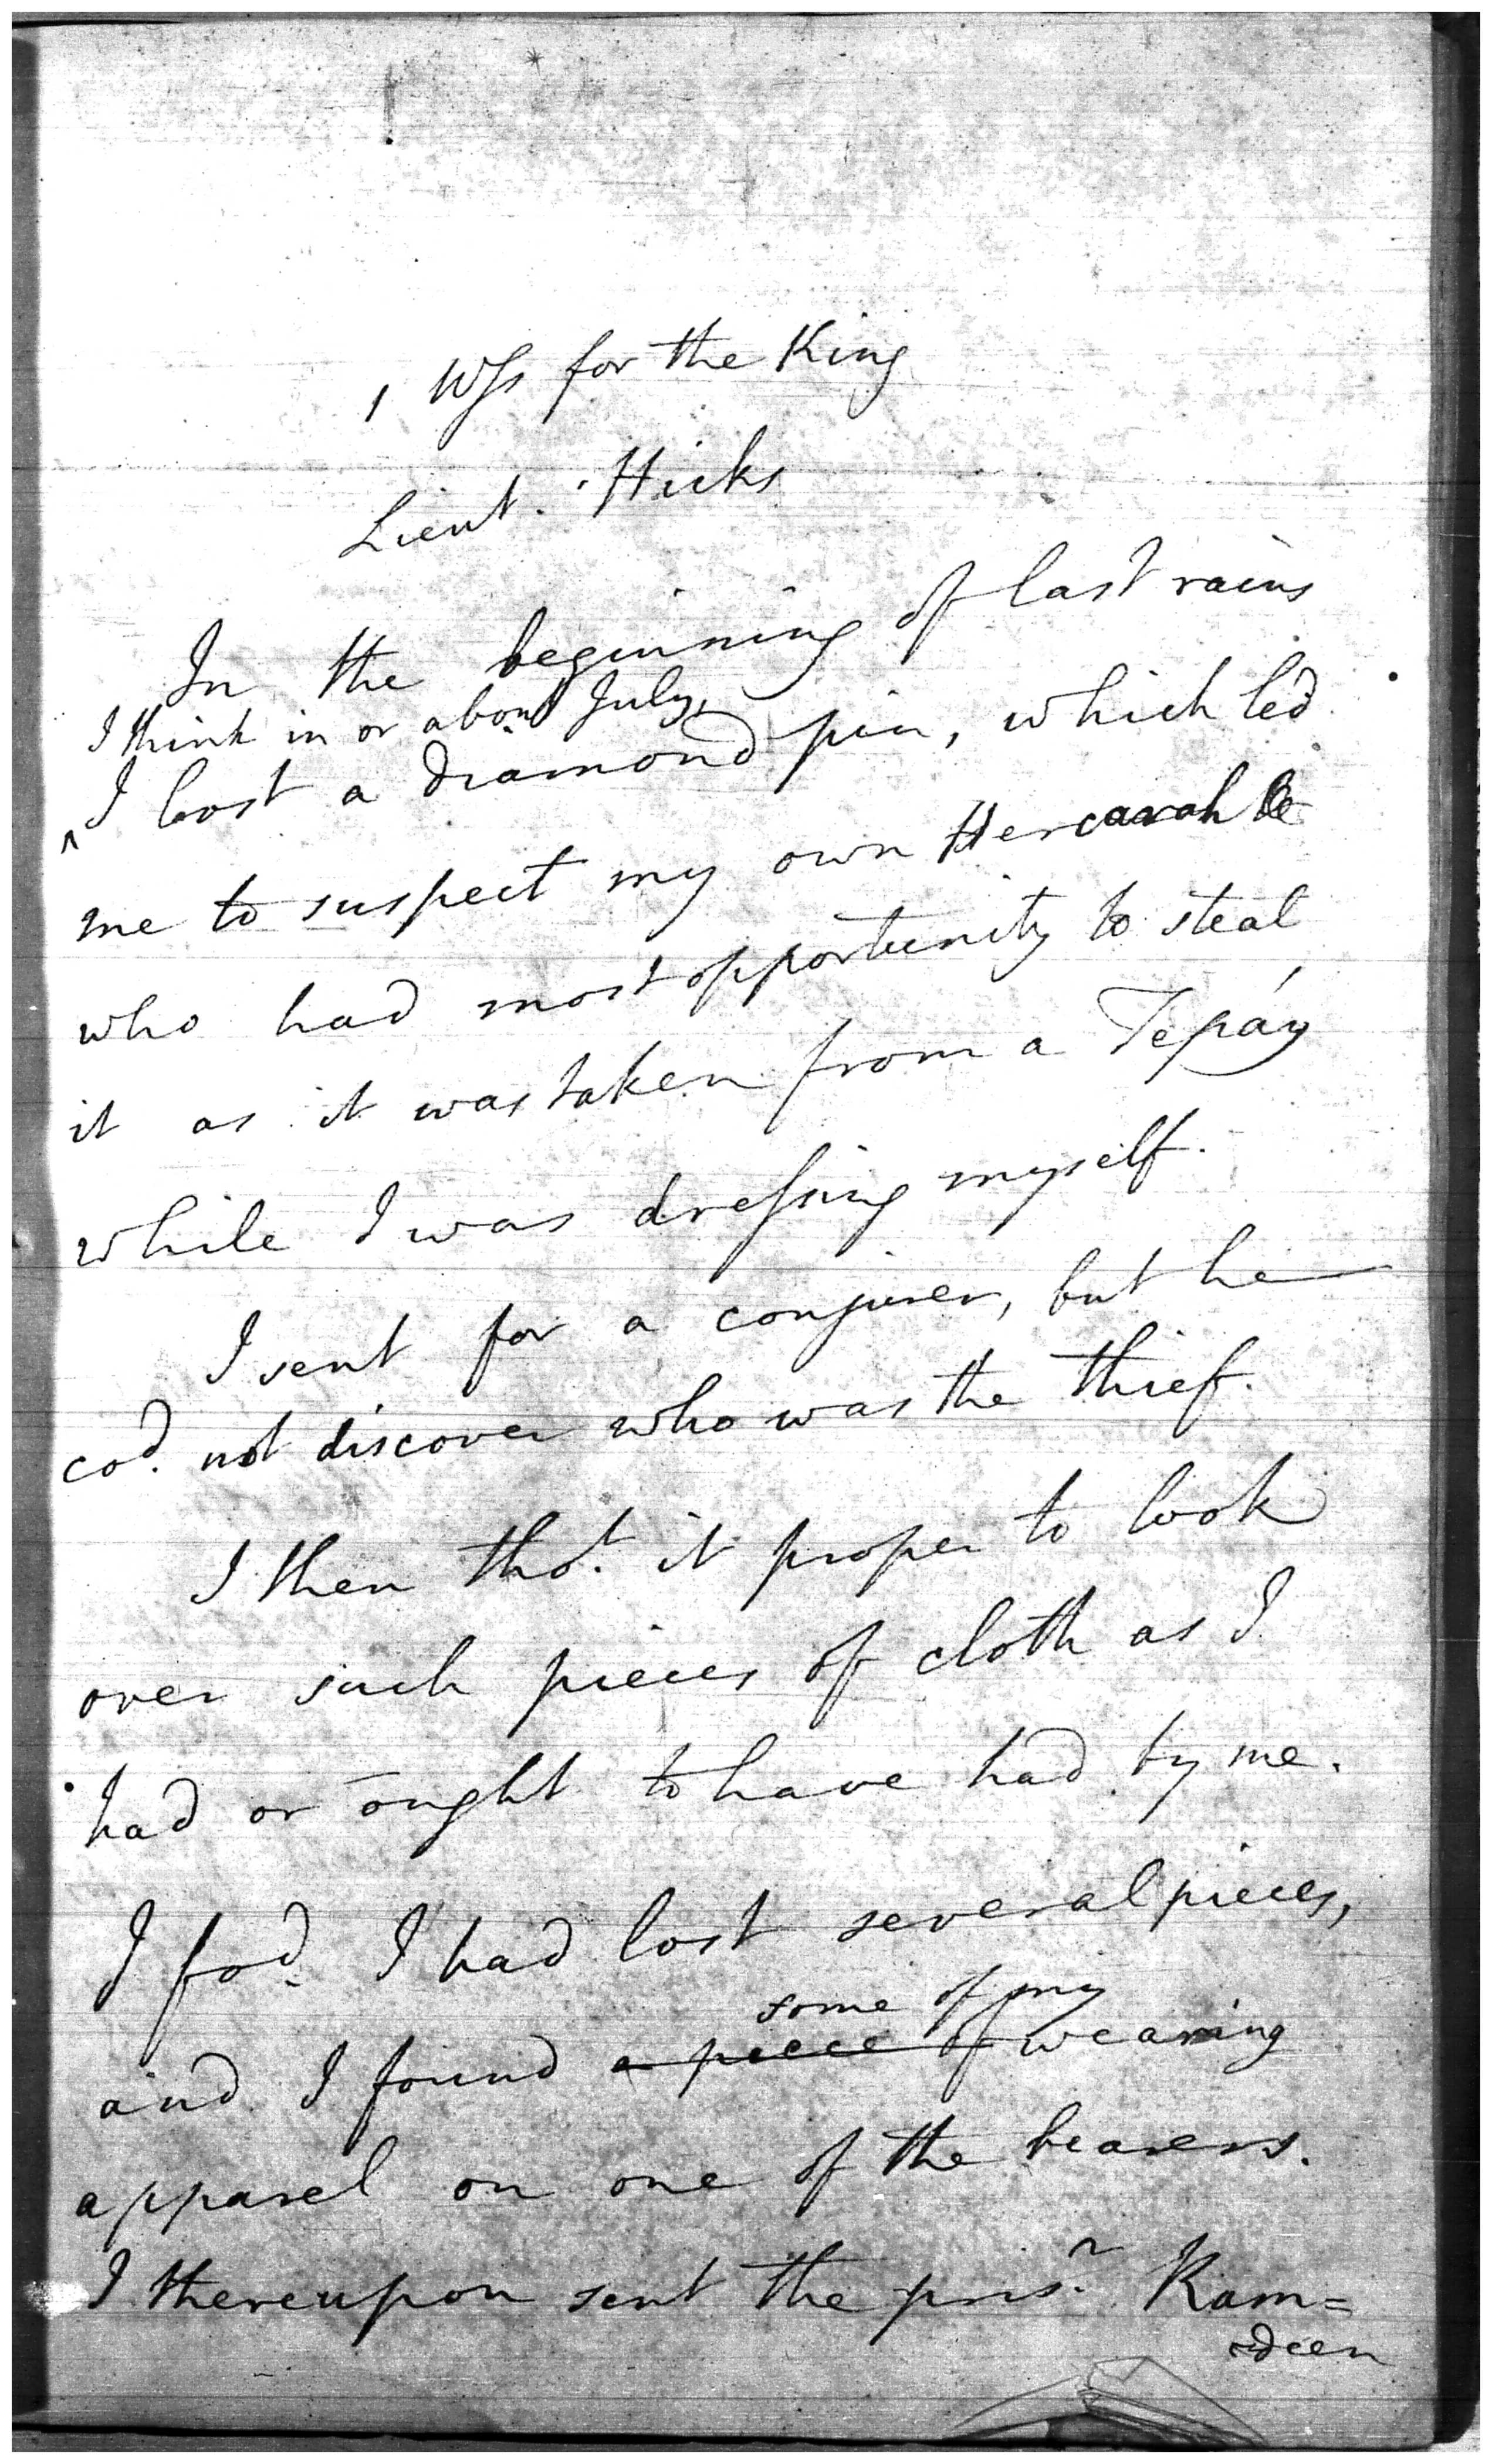 1 Wss for the King
Lieut. Hicks
In the beginning of last rains
I think in or about July,
^ I lost a diamond pin, which led
me to suspect my own Hercarah
who had most opportunity to steal
it as it was taken from a Tepáy
while I was dressing myself.
I sent for a conjurer, but he
cod. not discover who was the thief.
I then thot. it proper to look
over such pieces of cloth as I
had or ought to have had by me.
I fod. I had lost several pieces,
some of my
and I found a piece of wearing
apparel on one of the bearers.
I thereupon sent the prisr. Ram=
deen